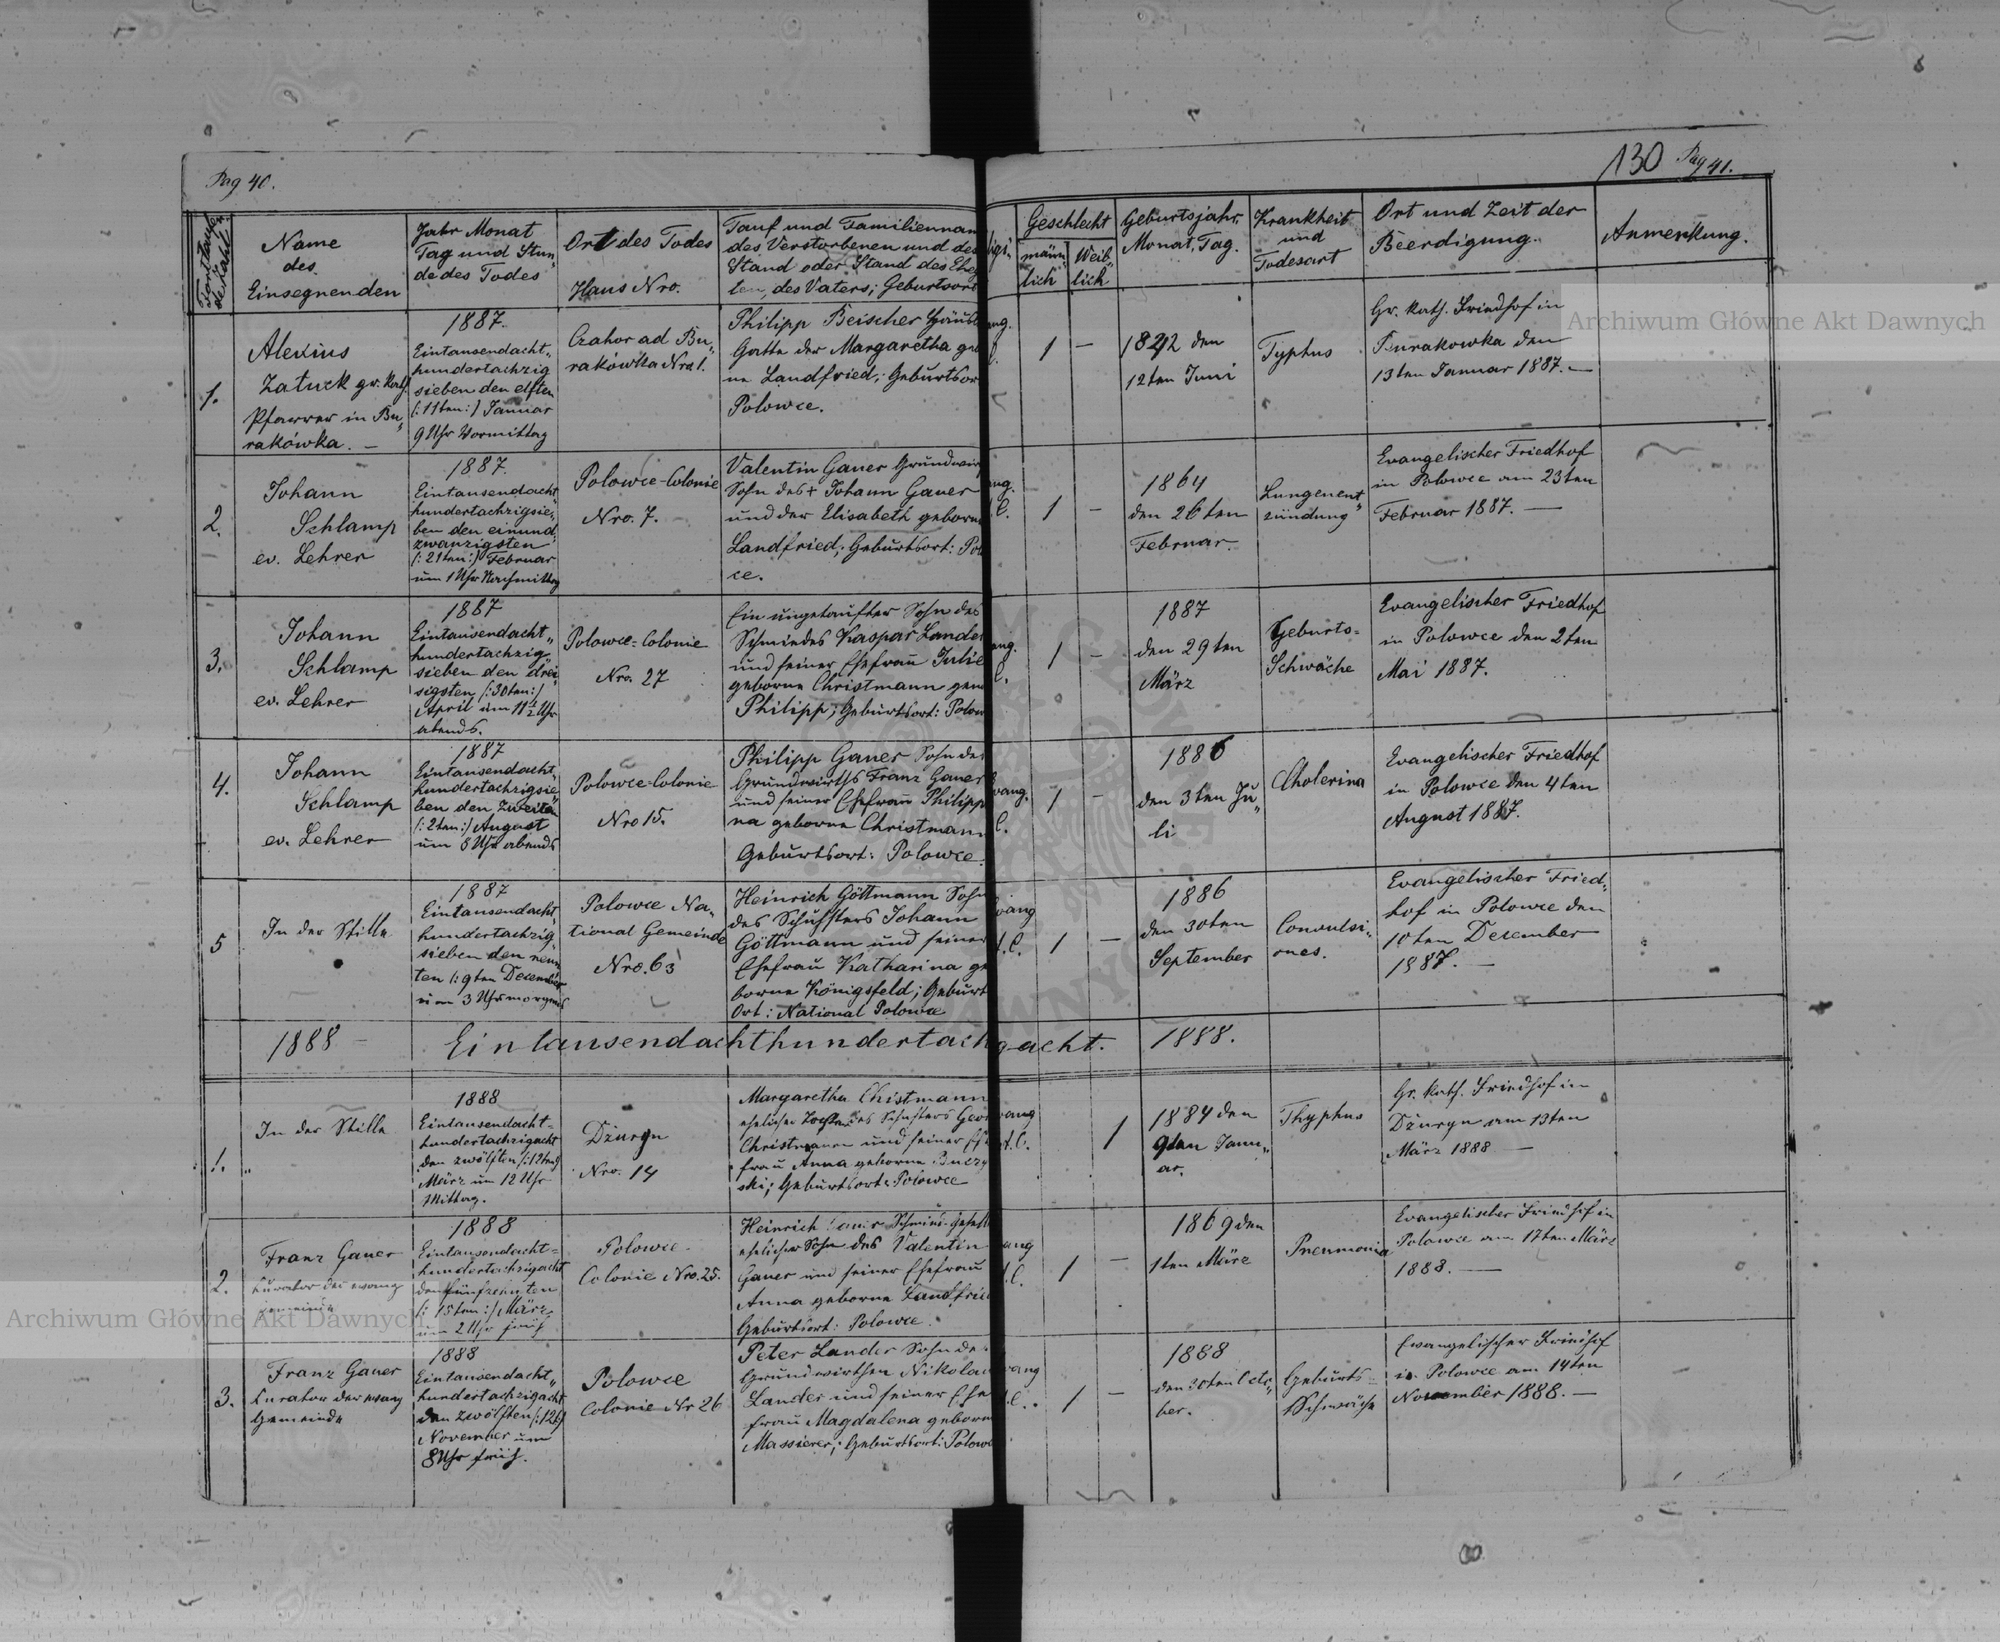 Pag 40.
130 Pag 41.
Fortlaufende Zahl.
Name
des
Einsegnenden
Jahr Monat
Tag und Stun„
de des Todes
Ort des Todes
Haus Nro.
Tauf und Familiennam
des Verstorbenen und des
Stand oder Stand des Eheg
ten, des Vaters; Geburtsort
ligi„
Geschlecht
männ„
lich
Weib„
lich
Geburtsjahr,
Monat, Tag.
Krankheit
und
Todesart
Ort und Zeit der
Beerdigung.
Anmerkung.
1.
Alexius
Zatuck gr. kath.
Pfarrer in Bu„
rakówka. —
1887.
Eintausendacht„
hundertachzig
sieben den elften
(: 11ten :) Januar
9 Uhr Vormittag
Czahor ad Bu„
rakówka Nro 1.
Philipp Beischer Häusl
Gatte der Margaretha ge
ne Landfried; Geburtsor
Polowce.
ang.
C.
1 —
1842 den
12ten Juni
Typhus
Gr. kath. Friedhof in
Burakowka den
13ten Januar 1887. —
2.
Johann
Schlamp
ev. Lehrer
1887.
Eintausendacht„
hundertachzigsie„
ben den einund„
zwanzigsten
(: 21ten :) Februar
um 1 Uhr Nachmittag
Polowce-Colonie
Nro. 7.
Valentin Gauer Grundwir
Sohn des + Johann Gauer
und der Elisabeth geborne
Landfried; Geburtsort: Pol
ce.
ang.
C.
1 —
1864
den 26ten
Februar.
Lungenent„
zündung
Evangelischer Friedhof
in Polowce am 23ten
Februar 1887. —
3.
Johann
Schlamp
ev. Lehrer
1887
Eintausendacht„
hundertachzig
sieben den drei
sigsten (: 30ten :)
April um 11½ Uhr
abends.
Polowce-Colonie
Nro. 27
Ein ungetaufter Sohn des
Schmiedes Kaspar Lander
und seiner Ehefrau Julie
geborne Christmann gena
Philipp; Geburtsort: Polow
ang.
C.
1 —
1887
den 29ten
März
Geburts=
Schwäche
Evangelischer Friedhof
in Polowce den 2ten
Mai 1887.
4.
Johann
Schlamp
ev. Lehrer
1887
Eintausendacht„
hundertachzigsie
ben den zweiten
(: 2ten :) August
um 8 Uhr abends
Polowce-Colonie
Nro 15.
Philipp Gauer Sohn des
Grundwirths Franz Gauer
und seiner Ehefrau Philipp
na geborne Christmann
Geburtsort: Polowce.
vang.
C.
1 —
1886
den 3ten Ju„
li
Cholerina
Evangelischer Friedhof
in Polowce den 4ten
August 1887.
5
In der Stille
1887
Eintausendacht„
hundertachzig
sieben den neun
ten (: 9ten December
um 3 Uhr morgens
Polowce Na„
tional Gemeinde
Nro. 63
Heinrich Göttmann Sohn
des Schusters Johann
Göttmann und seiner
Ehefrau Katharina ge
borne Königsfeld; Geburt
Ort: National Polowce
vang
A.C.
1 —
1886
den 30ten
September
Convulsi„
ones.
Evangelischer Fried„
hof in Polowce den
10ten December
1887. —
1888 — Eintausendachthundertach gacht. 1888.
1.
In der Stille
1888
Eintausendacht=
hundertachzigacht
den zwölften (: 12ten
März um 12 Uhr
Mittag.
Dżuryn
Nro. 14
Margaretha Christmann
eheliche Tochter des Schusters Geor
Christmann und seiner Ehe
frau Anna geborne Buczy
ski; Geburtsort: Polowce
vang
A.C.
1
1884 den
9ten Janu„
ar.
Thyphus
Gr. Kath. Friedhof in
Dżuryn am 13ten
März 1888 —
2.
Franz Gauer
Kurator der evang
Gemeinde
1888
Eintausendacht=
hundertachzigacht
den fünfzehnten
(: 15ten :) März
um 2 Uhr früh
Polowce
Colonie Nro. 25.
Heinrich Gauer Schmied-Gesell
ehelicher Sohn des Valentin
Gauer und seiner Ehefrau
Anna geborne Landfried
Geburtsort: Polowce.
ang
C.
1 —
1869 den
1ten März
Pneumonia
Evangelischer Friedhof in
Polowce am 17ten März
1888. —
3.
Franz Gauer
Kurator der evang
Gemeinde
1888
Eintausendacht„
hundertachzigacht
den zwölften (: 12t)
November um
8 Uhr früh.
Polowce
Colonie Nr 26
Peter Lander Sohn des
Grundwirthen Nikolau
Lander und seiner Ehe
frau Magdalena geborn
Massierer; Geburtsort: Polow
vang
C.
1 —
1888
den 30ten Octo„
ber.
Geburts=
Schwäche
Evangelischer Friedhof
in Polowce am 14ten
November 1888. —
Archiwum Główne Akt Dawnych
Archiwum Główne Akt Dawnych